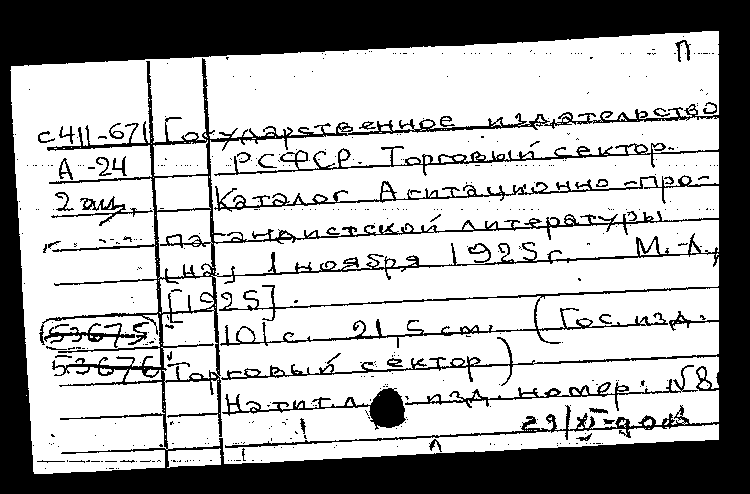 П
с411-671 Государственное издательство
А-24 РСФСР. Торговый сектор.
2 экз. Каталог Агитационно-про-
пагандистской литературы
[на] 1 ноября 1925г. М.-Л.,
[1925].
53675 101с. 21,5 см. (Гос. изд.
53676 Торговый сектор)
На тит. л. изд. номер: №8
29/XI-90